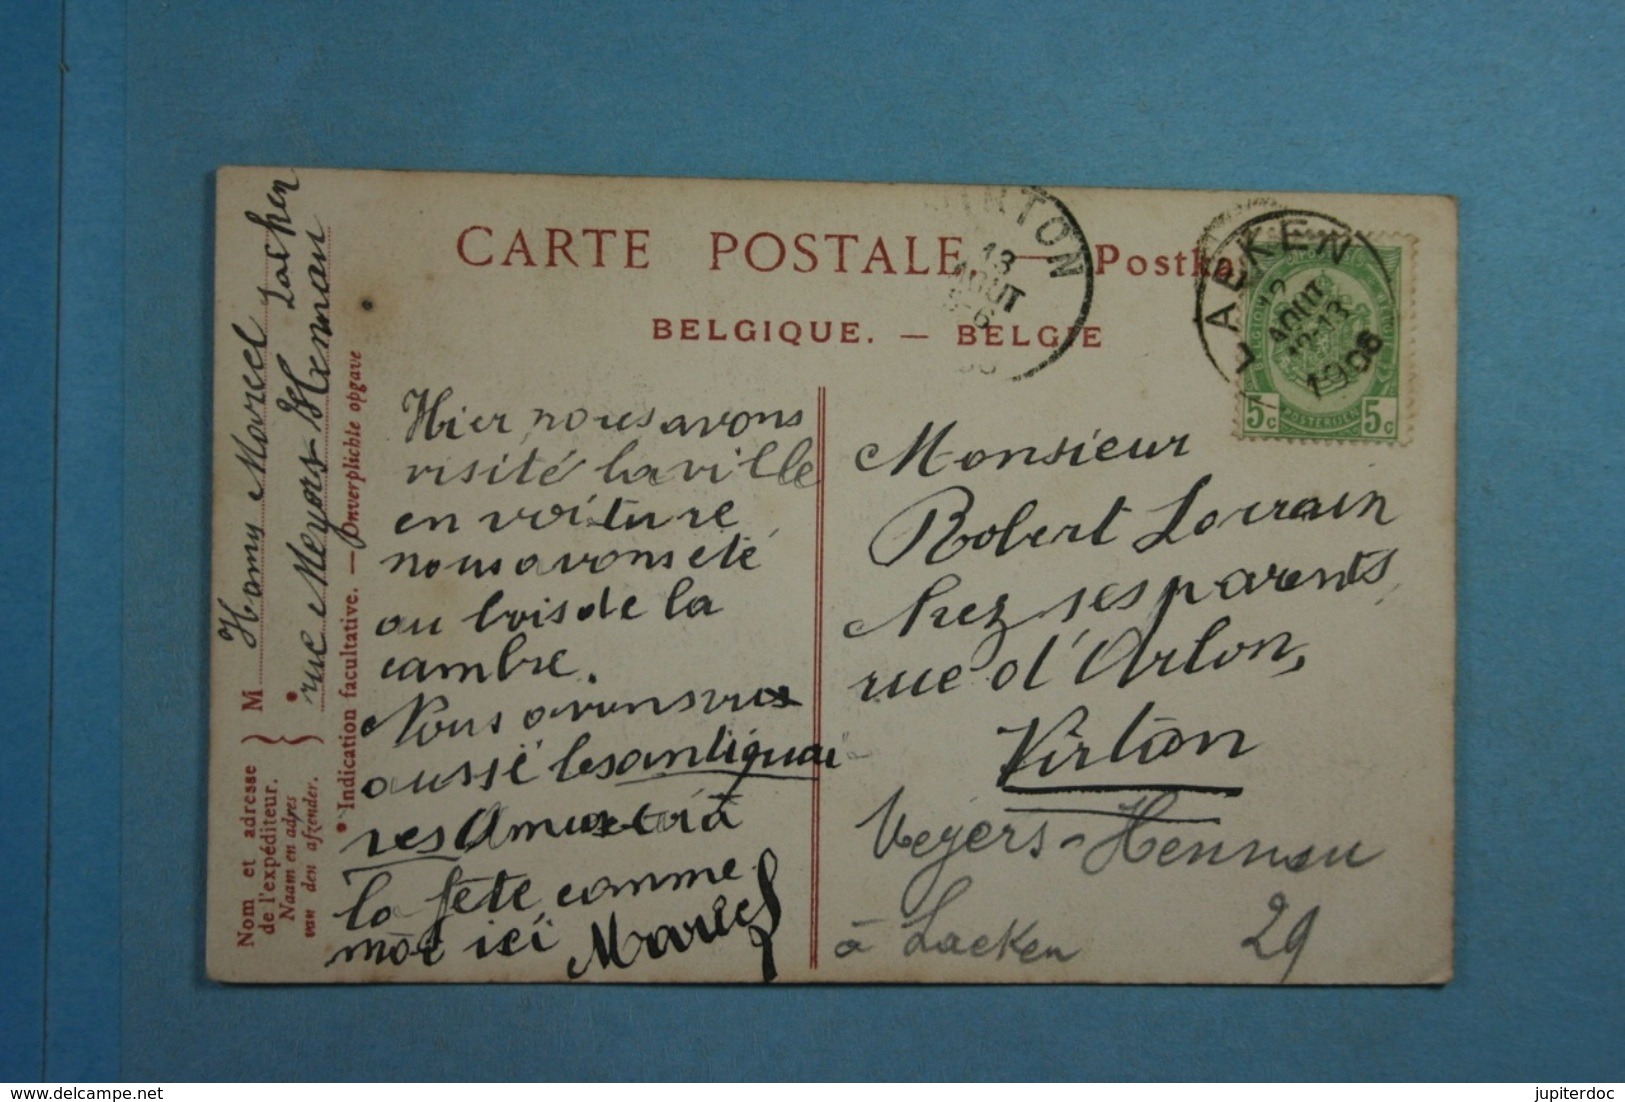 CARTE POSTALE — Postka
BELGIQUE. — BELGIE
VIRTON
13
AOUT
5-6
LAEKEN
12
AOUT
12-13
1906
5c
POSTERIJEN
5c
Hier nous avons
visité la ville
en voiture
nous avons été
au bois de la
cambre.
Nous avons vus
aussi les antiquai
res Amuse toi à
la fête comme
moi ici Marcel
Monsieur
Robert Lorrain
chez ses parents
rue d'Arlon,
Virton
Meyers-Hennau
à Laeken 29
Nom et adresse
de l'expéditeur.
Naam en adres
van den afzender.
M Hamy Marcel
rue Meyers-Hennau
Laeken
Indication facultative. — Onverplichte opgave
www.delcampe.net
jupiterdoc